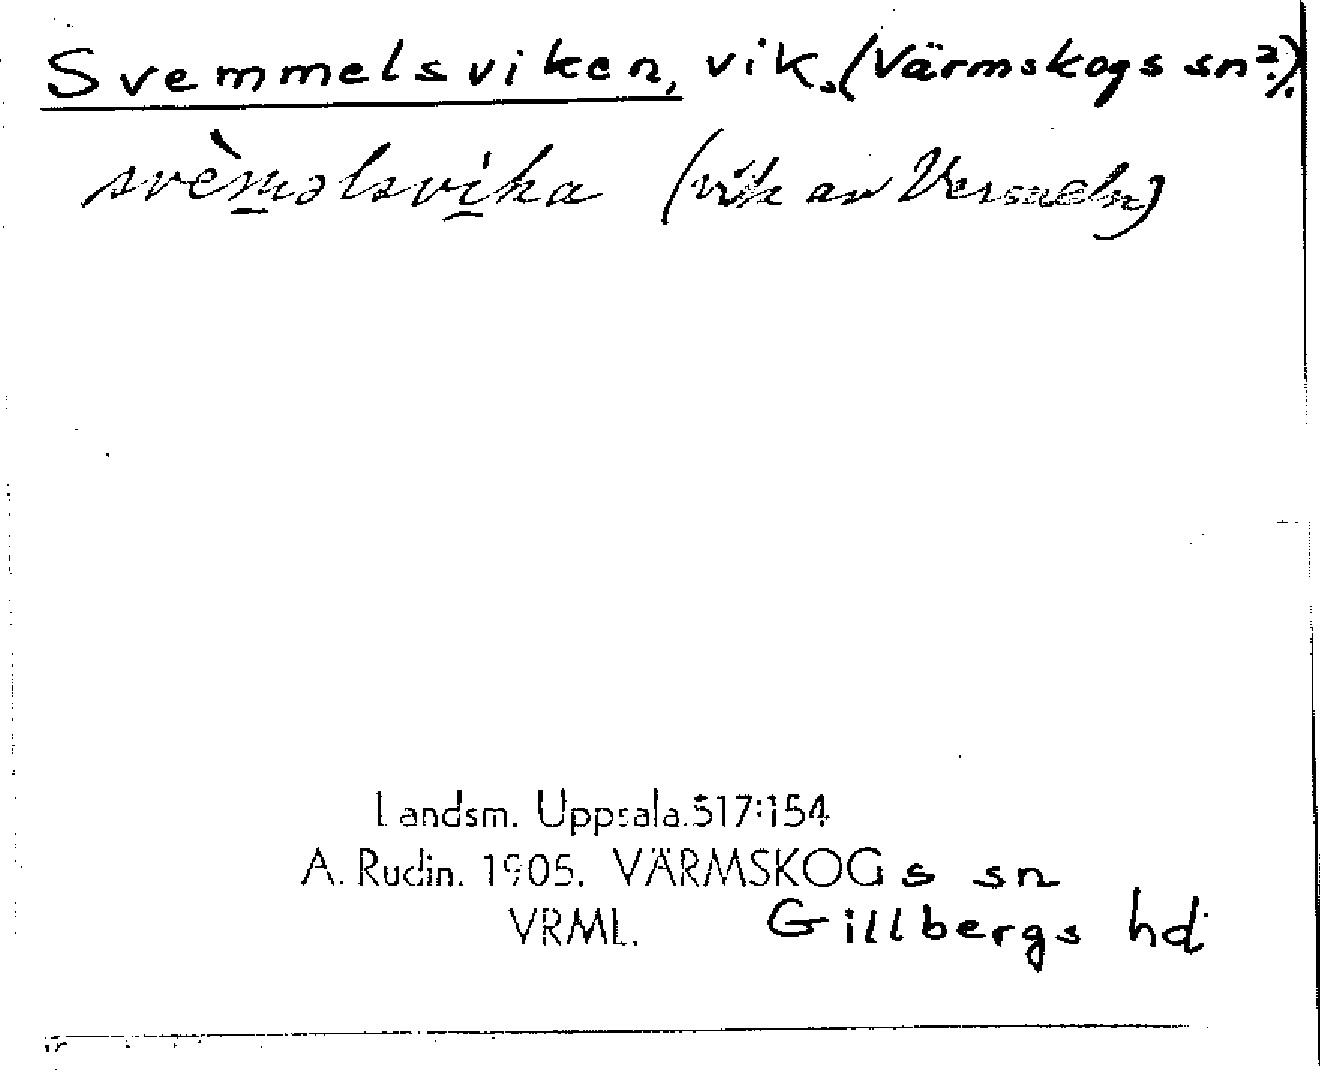 Svemmelsviken, vik. (Värmskogs sn?).
svèməlsvíka (vik av Vermeln)
Landsm. Uppsala. 517:154
A. Rudin. 1905. VÄRMSKOGs sn
VRML. Gillbergs hd